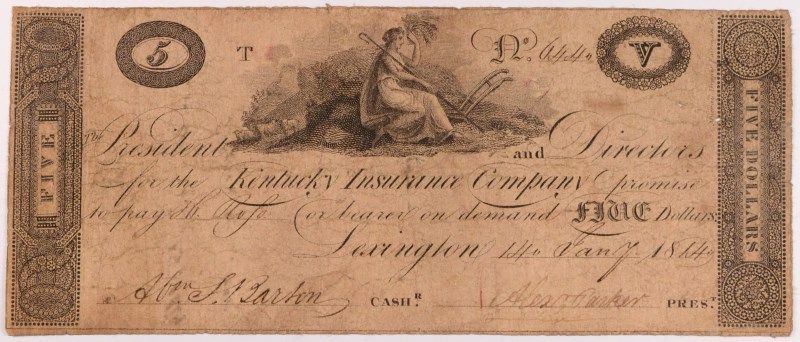 5 T No. 644 V
FIVE
FIVE DOLLARS
The President and Directors
for the Kentucky Insurance Company promise
to pay H. Clay or bearer on demand FIVE Dollars
Lexington 14 Jany. 1814
Abm S. Barton CASHR. Alexr Parker PREST.